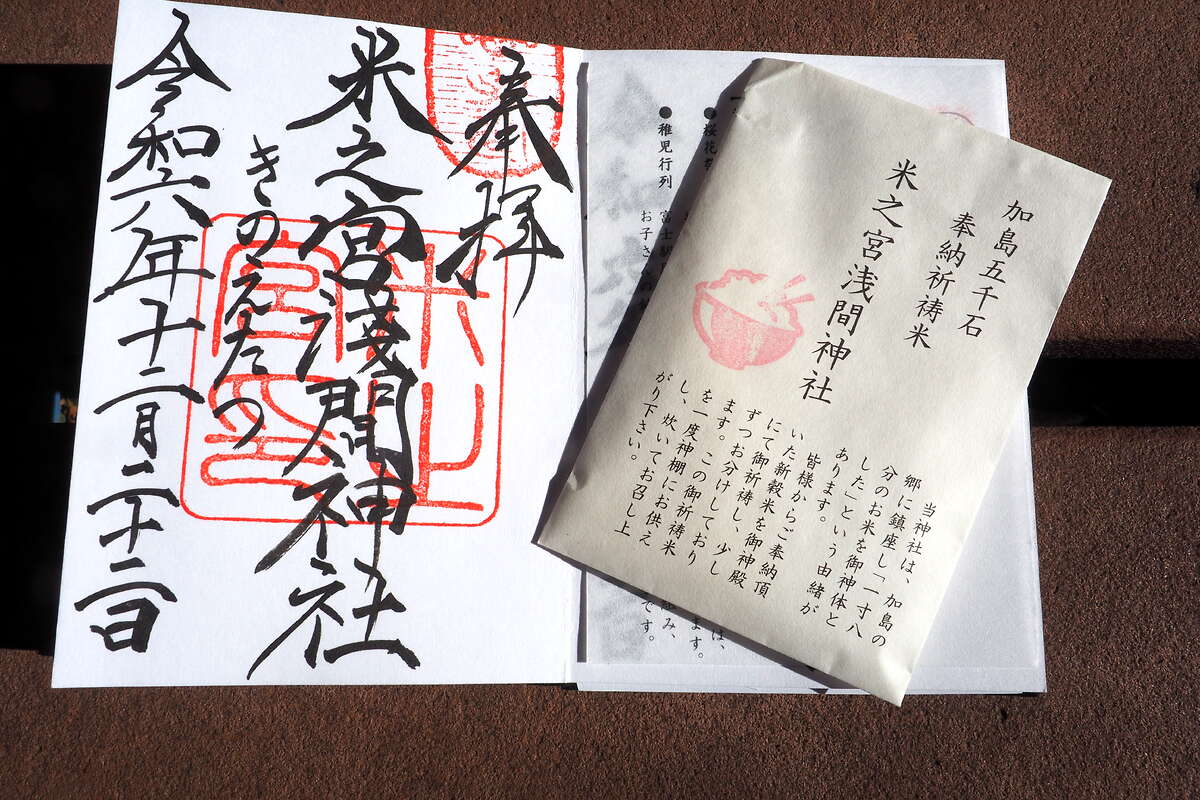 奉拝
米之宮淺間神社
きのえたつ
令和六年十二月二十二日
米之宮印
加島五千石
奉納祈祷米
米之宮浅間神社
当神社は、加島の
郷に鎮座し「一寸八
分のお米を御神体と
した」という由緒が
あります。
皆様からご奉納頂
いた新穀米を御神殿
にて御祈祷し、少し
ずつお分けしており
ます。この御祈祷米
を一度神棚にお供え
し、炊いてお召し上
がり下さい。
●桜花
●稚児行列
富士駅
お子さ
は、
ます。
み、
です。